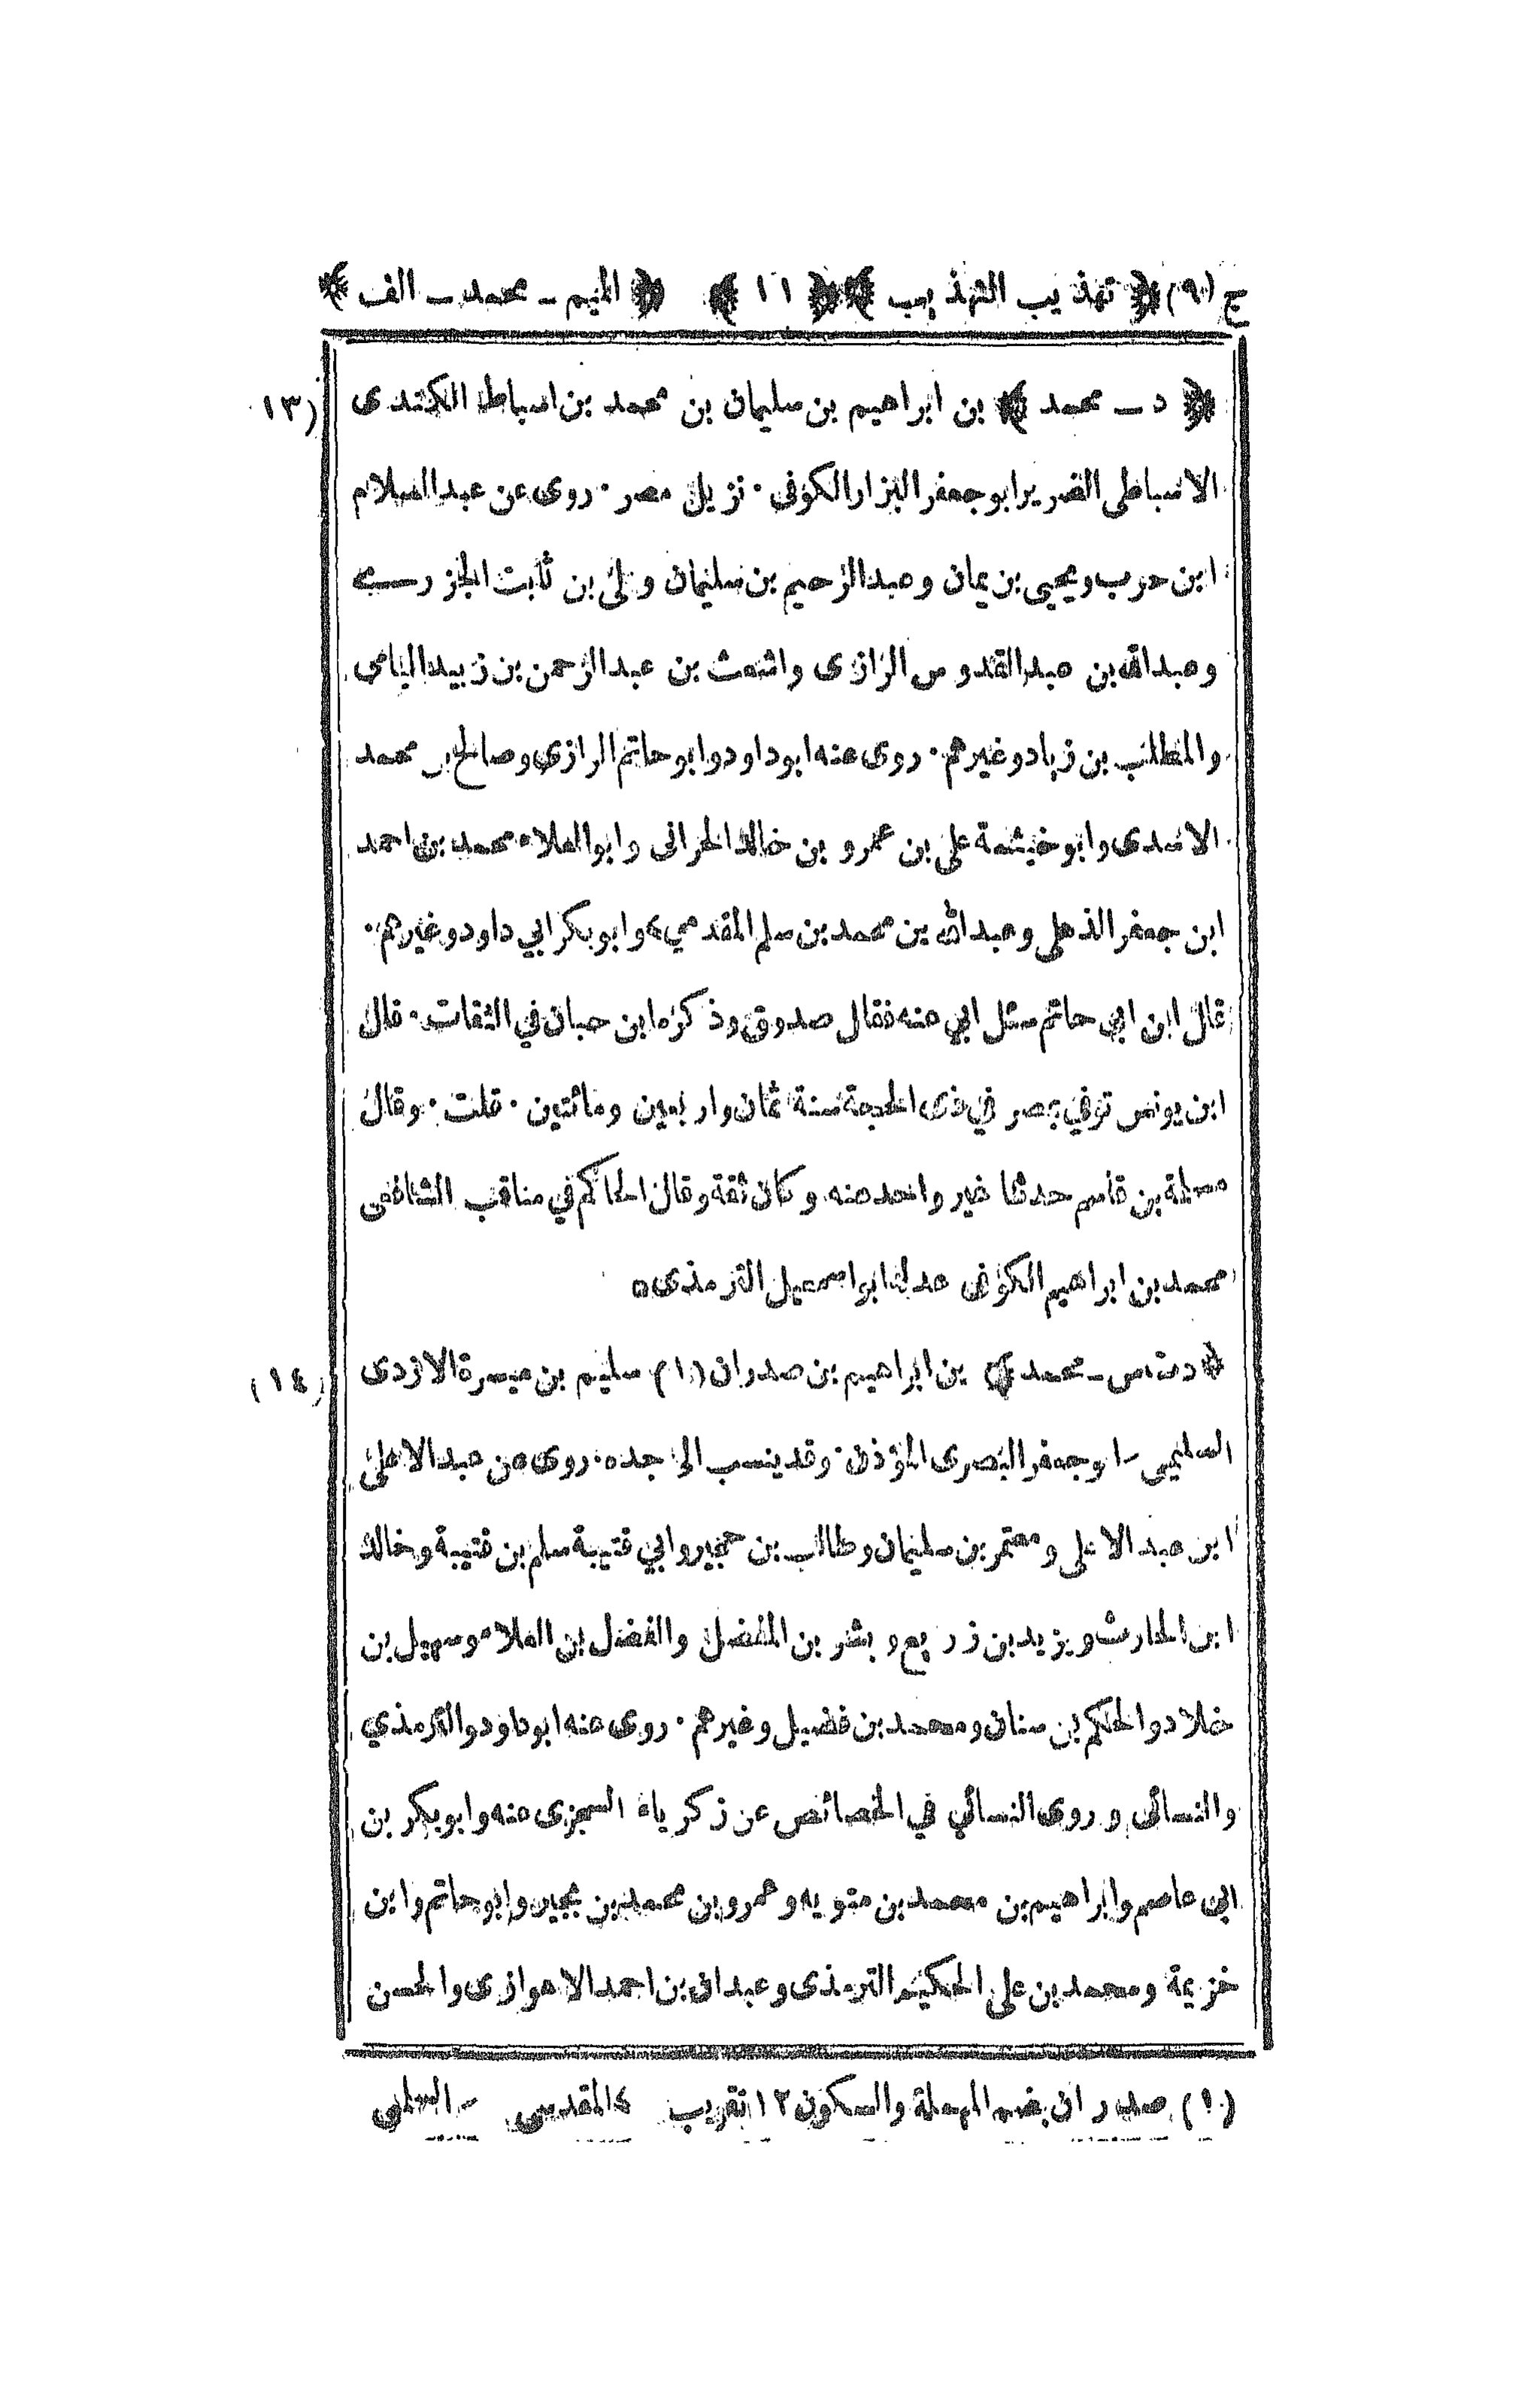 ج (٩) ﴿ تهذيب التهذيب ﴾ ﴿ ١١ ﴾ ﴿ الميم ــ محمد ــ الف ﴾
﴿ د ــ محمد ﴾ بن ابراهيم بن سليمان بن محمد بن اسباط الكندى (١٣)
الاسباطى الضرير ابو جعفر البزار الكوفى . نزيل مصر . روى عن عبد السلام
ابن حرب ويحيى بن يمان وعبد الرحيم بن سليمان وعلى بن ثابت الجزرى
وعبد الله بن عبد القدوس الرازى واشعث بن عبد الرحمن بن زبيد اليامى
والمطلب بن زياد وغيرهم . روى عنه ابو داود وابو حاتم الرازى وصالح بن محمد
الاسدى وابو خيثمة على بن عمرو بن خالد الحرانى وابو العلاء محمد بن احمد
ابن جعفر الذهلى وعبد الله بن محمد بن سلم المقدمي ٤ وابو بكر ابي داود وغيرهم .
قال ابن ابي حاتم سئل ابي عنه فقال صدوق وذكره ابن حبان في الثقات . قال
ابن يونس توفي بمصر في ذى الحجة سنة ثمان واربعين ومائتين . قلت . وقال
مسلمة بن قاسم حدثنا غير واحد عنه وكان ثقة وقال الحاكم في مناقب الشافعى
محمد بن ابراهيم الكوفى عدلنا ابو اسمعيل الترمذى ٥
﴿ د ت س ــ محمد ﴾ بن ابراهيم بن صدران (١) سليم بن ميسرة الازدى (١٤)
السليمى ــ ابو جعفر البصرى المؤذن . وقد ينسب الى جده . روى عن عبد الاعلى
ابن عبد الاعلى ومعتمر بن سليمان وطالب بن حجير وابي قتيبة سلم بن قتيبة وخالد
ابن الحارث ويزيد بن زريع وبشر بن المفضل والفضل بن العلاء وسهيل بن
خلاد والحكم بن سنان ومحمد بن فضيل وغيرهم . روى عنه ابو داود والترمذي
والنسائى وروى النسائي في الخصائص عن زكرياء السجزى عنه وابو بكر بن
ابى عاصم وابراهيم بن محمد بن متويه وعمرو بن محمد بن بجير وابو حاتم وابن
خزيمة ومحمد بن على الحكيم الترمذى وعبدان بن احمد الاهوازى والحسن
(١) صدران بضم المهملة والسكون ١٢ تقريب ٤ المقدسى ــ السلمى